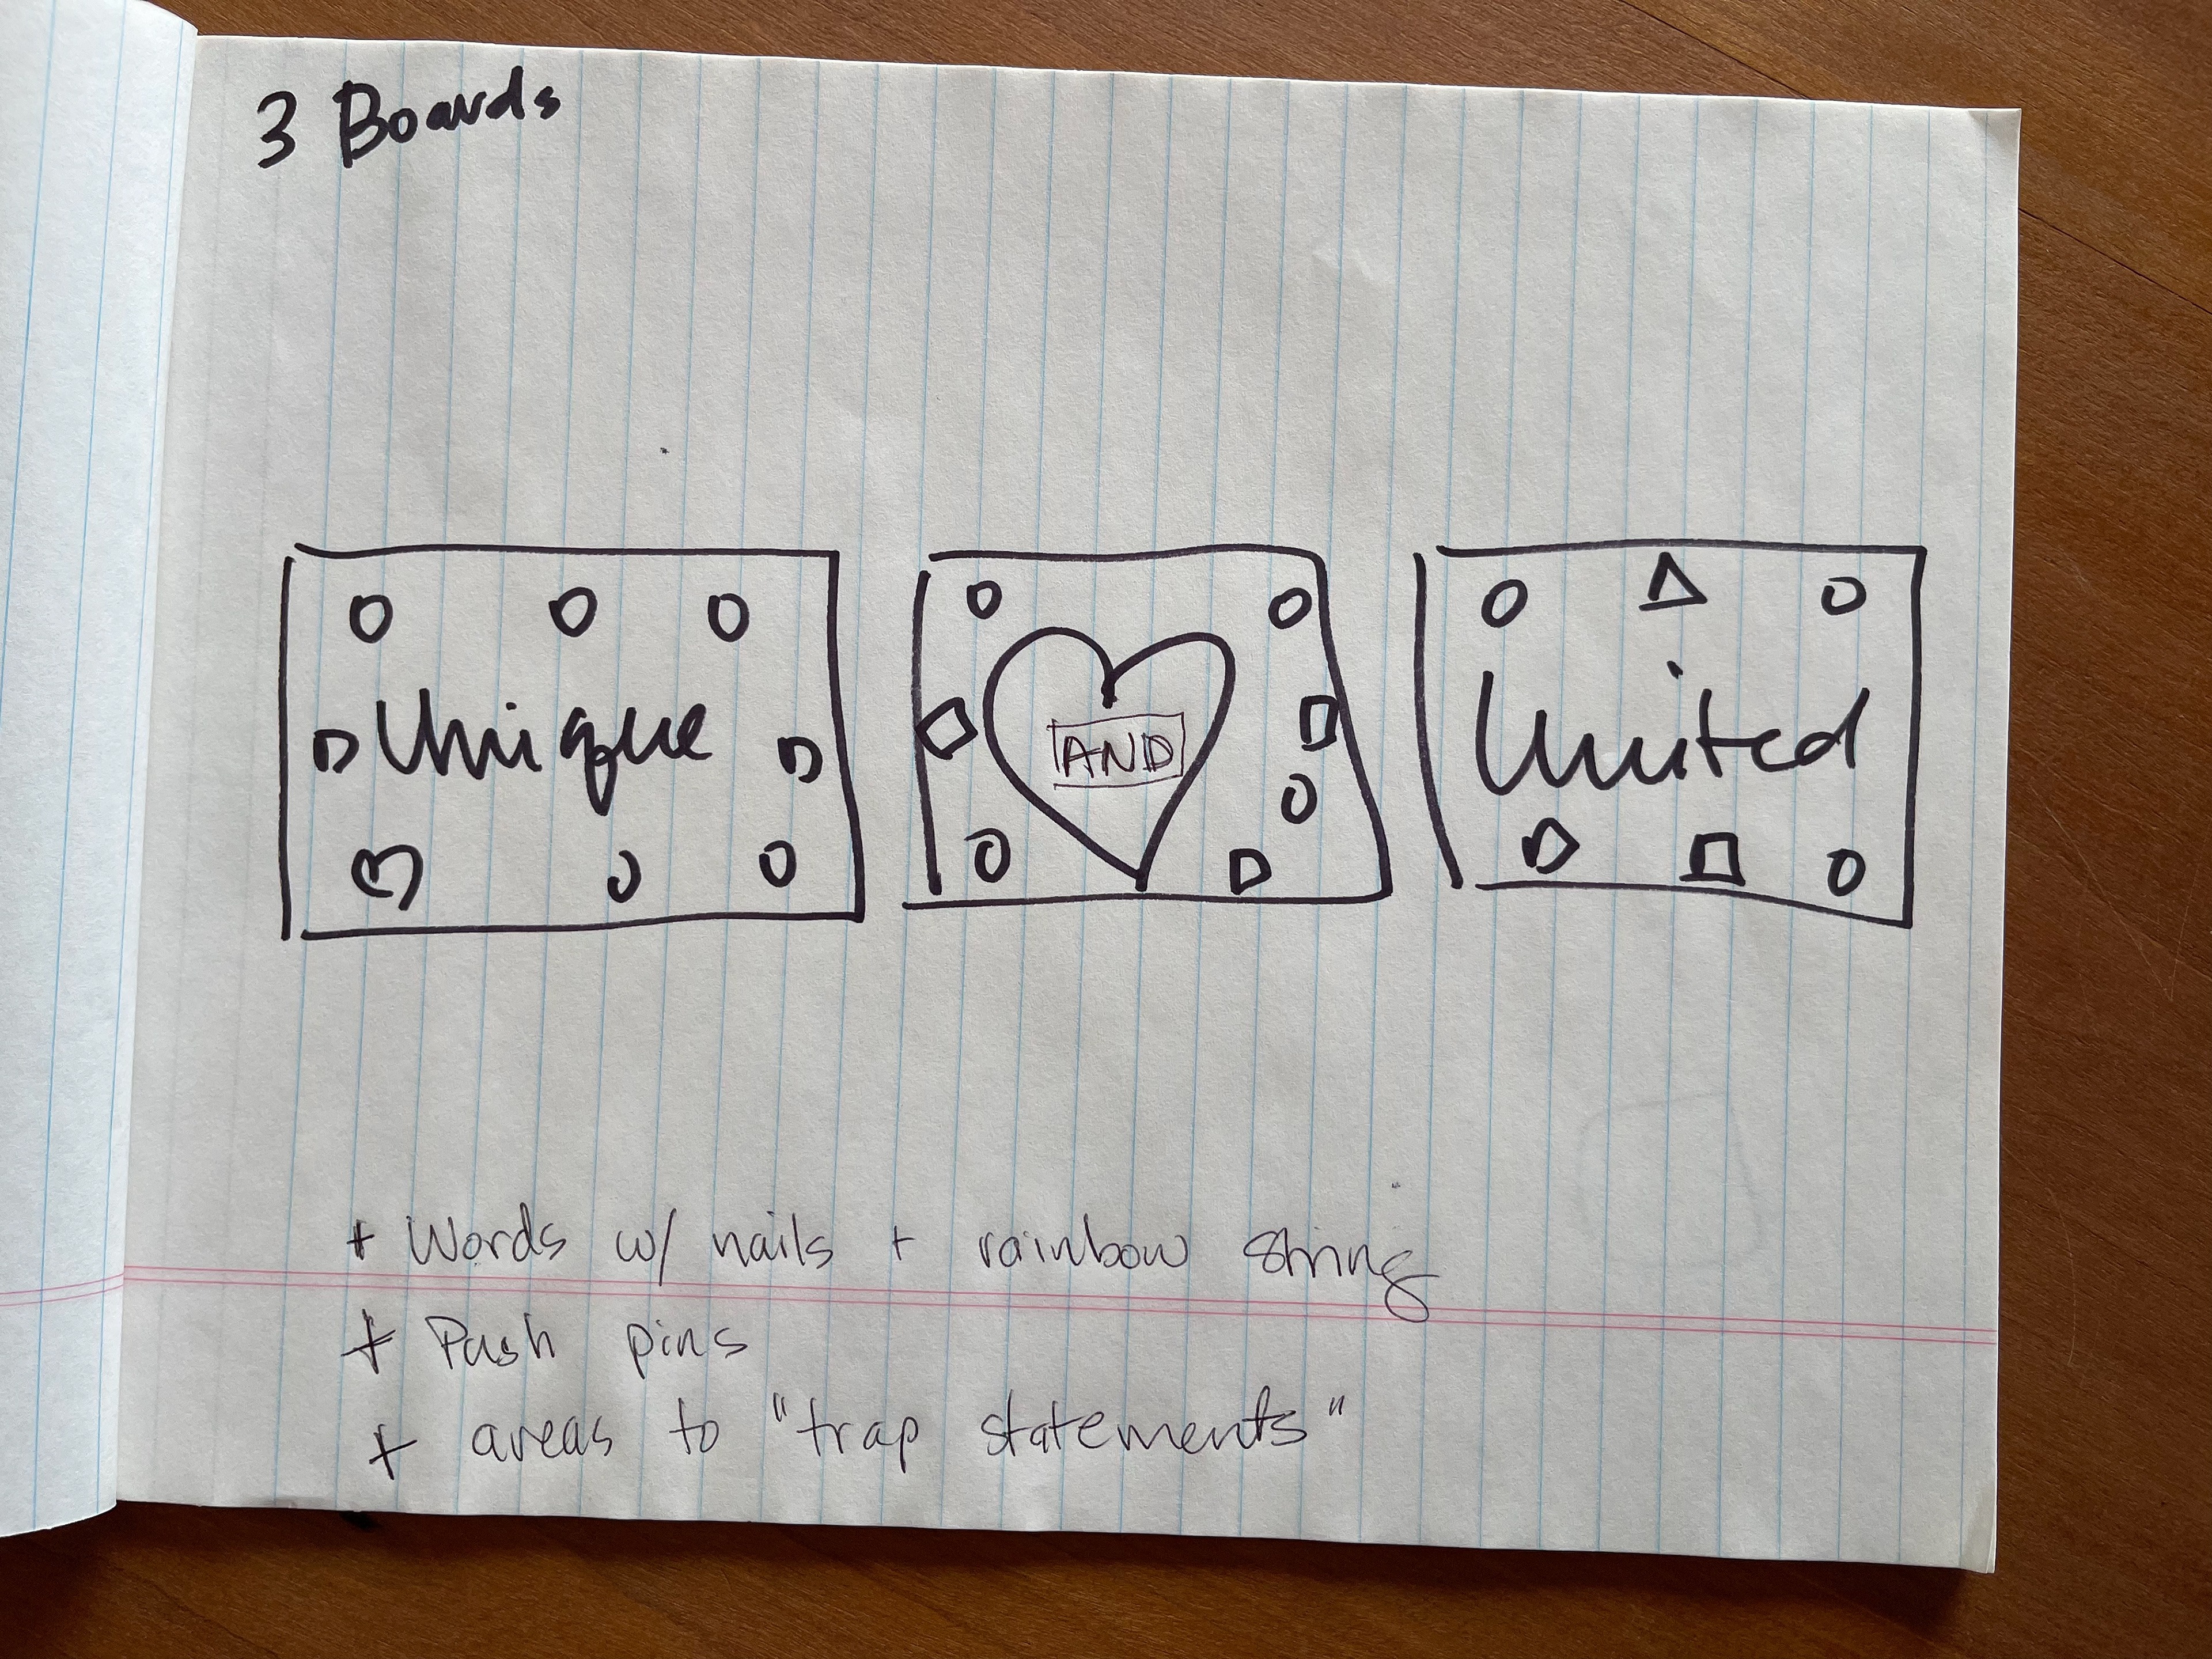 3 Boards
Unique
AND
United
+ Words w/ nails + rainbow string
+ Push pins
+ areas to "trap statements"